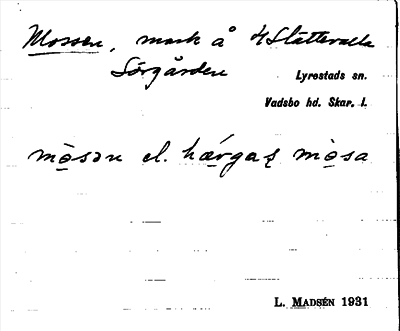 Mossen, mark å Slättevalla
Sörgården
Lyrestads sn.
Vadsbo hd. Skar. l.
mòsən el. hǽvgas mòsa
L. MADSÉN 1931